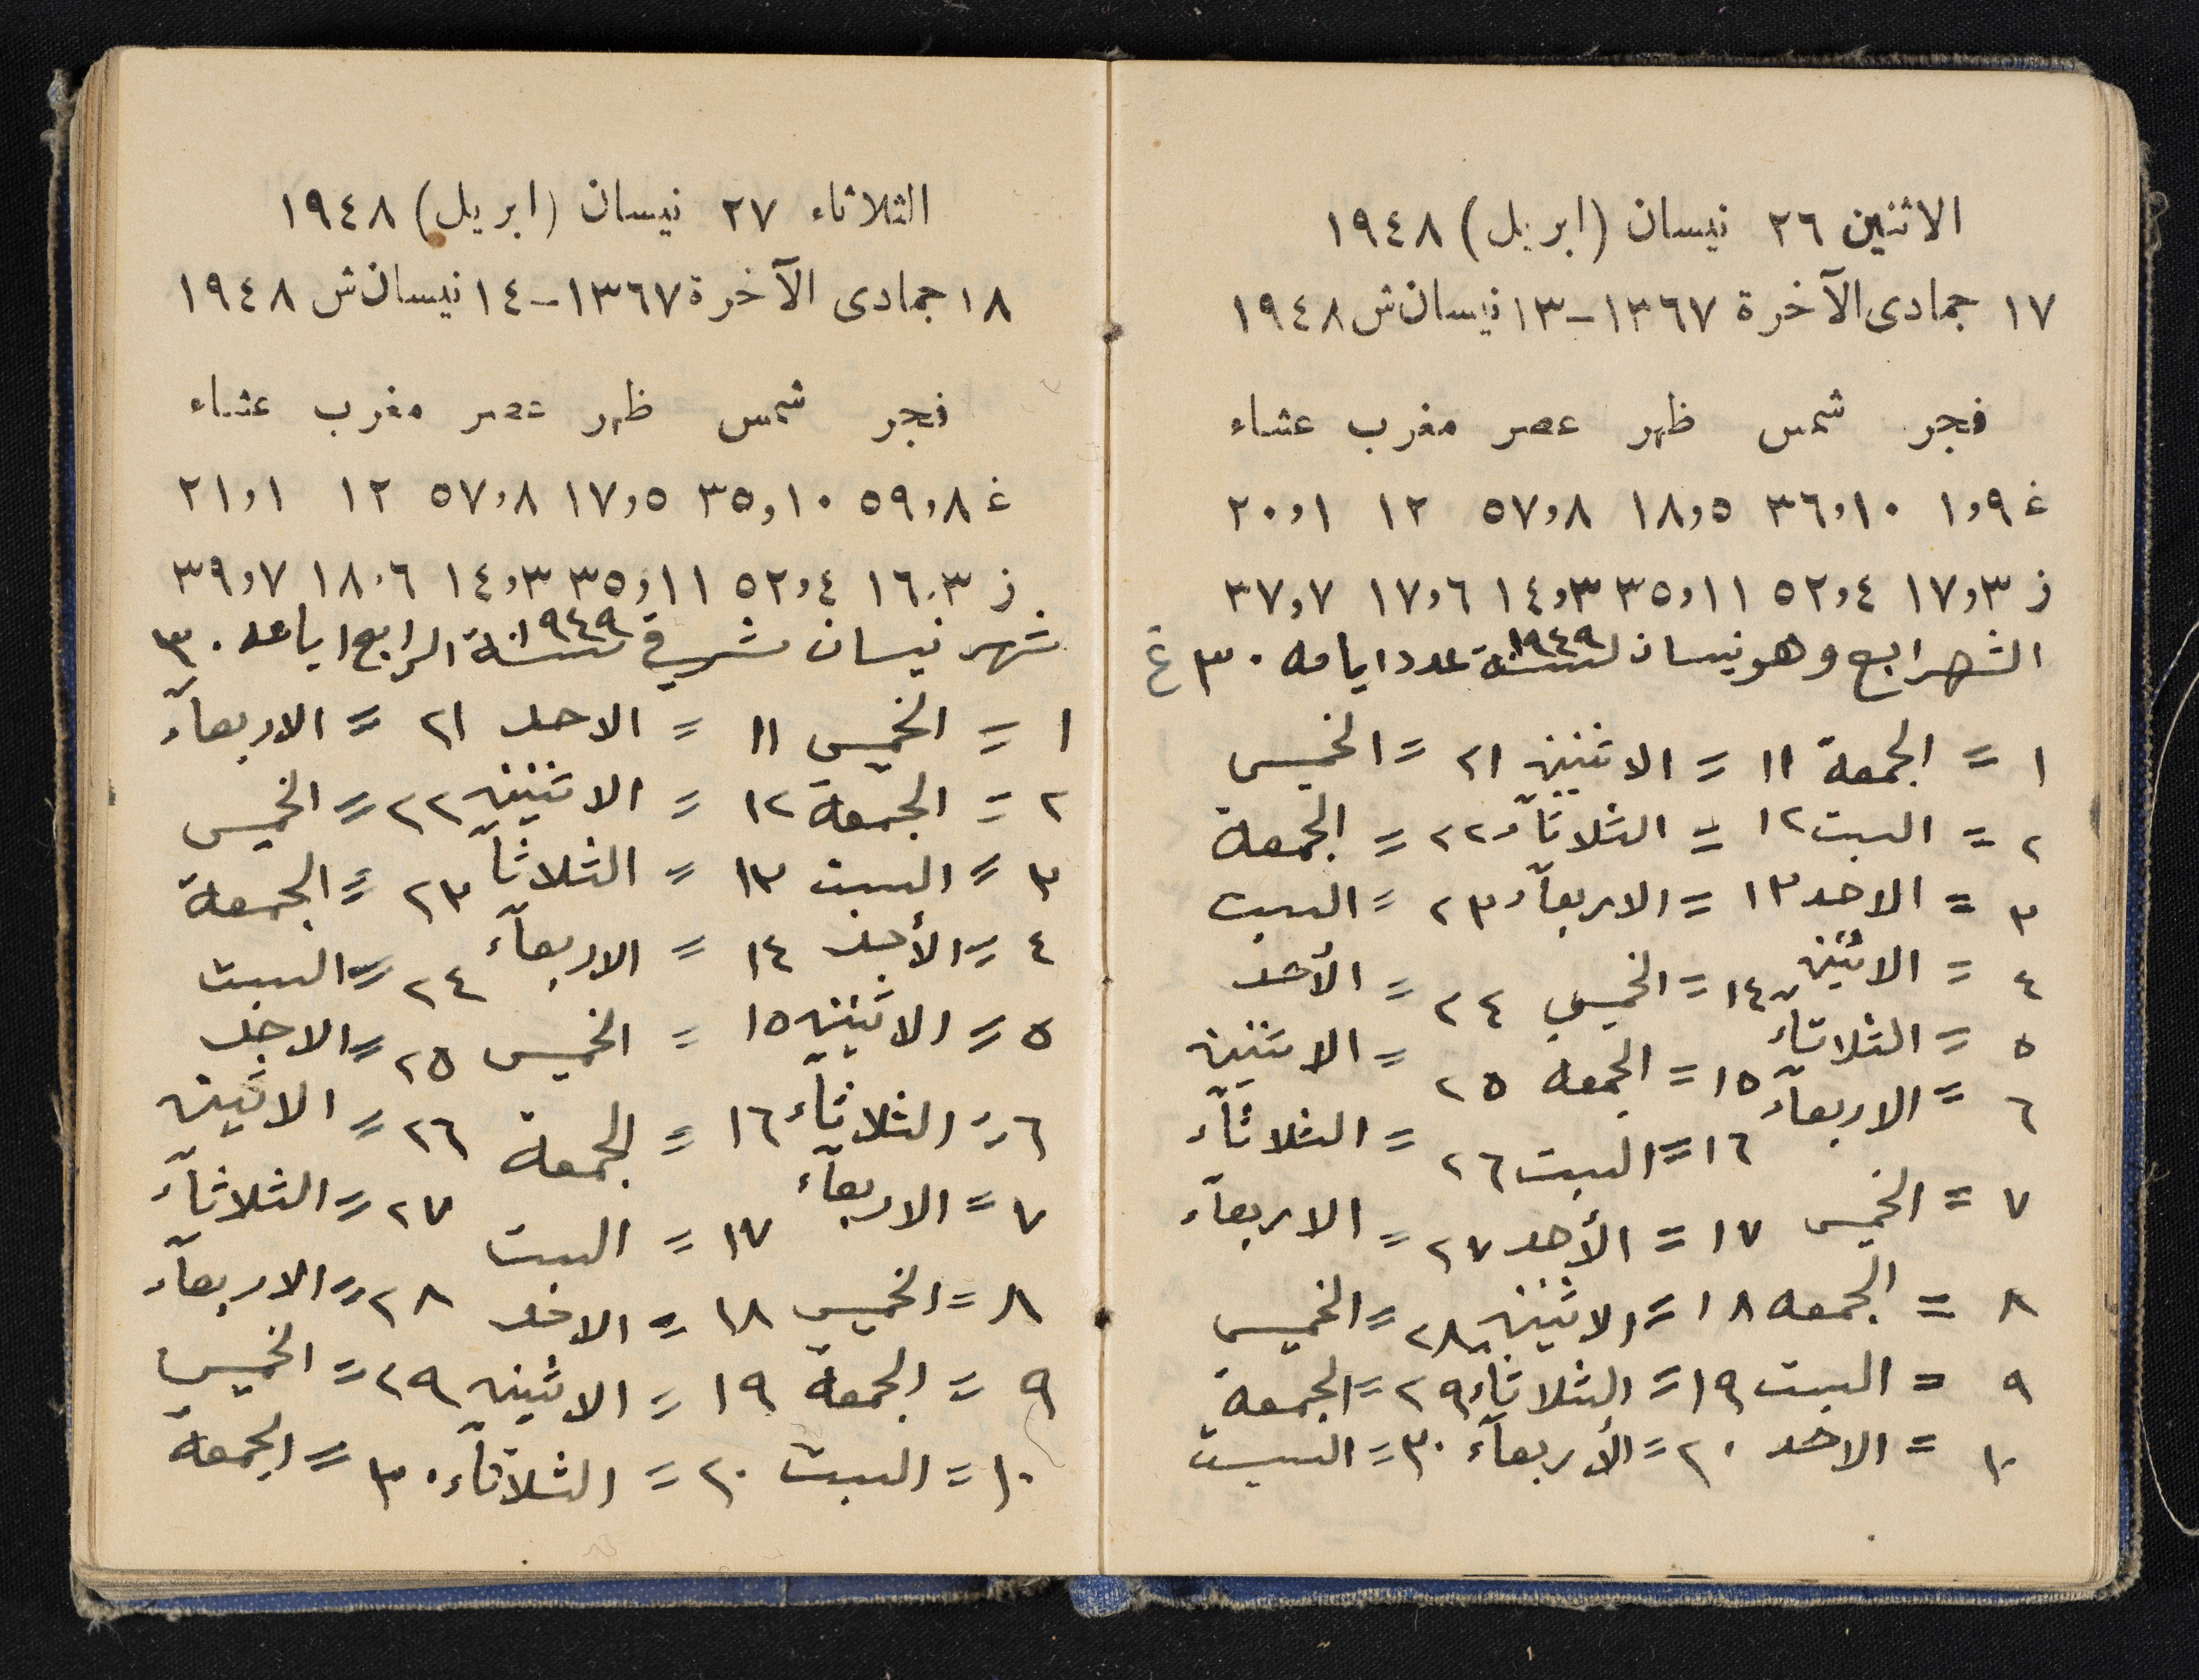 الاثنين ٢٦ نيسان (ابريل) ١٩٤٨
١٧ جمادى الآخرة ١٣٦٧ - ١٣ نيسان ش ١٩٤٨
فجر شمس ظهر عصر مغرب عشاء
غ ١،٩ ٣٦،١٠ ١٨،٥ ٥٧،٨ ١٢ ٢٠،١
ز ١٧،٣ ٥٢،٤ ٣٥،١١ ١٤،٣ ١٧،٦ ٣٧،٧
الشهرابع وهو نيسان لسنة ١٩٤٩ عدد ايامه ٣٠ غ
١ = الجمعة ١١ = الاثنين ٢١ = الخميس
٢ = السبت ١٢ = الثلاثآء ٢٢ = الجمعة
٣ = الاحد ١٣ = الاربعآء ٢٣ = السبت
٤ = الاثنين ١٤ = الخميس ٢٤ = الأحد
٥ = الثلاثآء ١٥ = الجمعه ٢٥ = الاثنين
٦ = الاربعآء ١٦ = السبت ٢٦ = الثلاثآء
٧ = الخميس ١٧ = الأحد ٢٧ = الاربعآء
٨ = الجمعه ١٨ = الاثنين ٢٨ = الخميس
٩ = السبت ١٩ = الثلاثآء ٢٩ = الجمعة
١٠ = الاحد ٢٠ = الأربعآء ٣٠ = السبت
الثلاثاء ٢٧ نيسان (ابريل) ١٩٤٨
١٨ جمادى الآخرة ١٣٦٧ - ١٤ نيسان ش ١٩٤٨
فجر شمس ظهر عصر مغرب عشاء
غ ٥٩،٨ ٣٥،١٠ ١٧،٥ ٥٧،٨ ١٢ ٢١،١
ز ١٦،٣ ٥٢،٤ ٣٥،١١ ١٤،٣ ١٨،٦ ٣٩،٧
شهر نيسان شرقي سنة ١٩٤٩ الرابع ٣٠
١ = الخميس ١١ = الاحد ٢١ = الاربعآء
٢ = الجمعة ١٢ = الاثنين ٢٢ = الخميس
٣ = السبت ١٣ = الثلاثآ ٢٣ = الجمعة
٤ = الأحد ١٤ = الاربعآء ٢٤ = السبت
٥ = الاثنين ١٥ = الخميس ٢٥ = الاحد
٦ = الثلاثآء ١٦ = الجمعة ٢٦ = الاثنين
٧ = الاربعآء ١٧ = السبت ٢٧ = الثلاثآء
٨ = الخميس ١٨ = الاحد ٢٨ = الاربعآء
٩ = الجمعة ١٩ = الاثنين ٢٩ = الخميس
١٠ = السبت ٢٠ = الثلاثآء ٣٠ = الجمعة